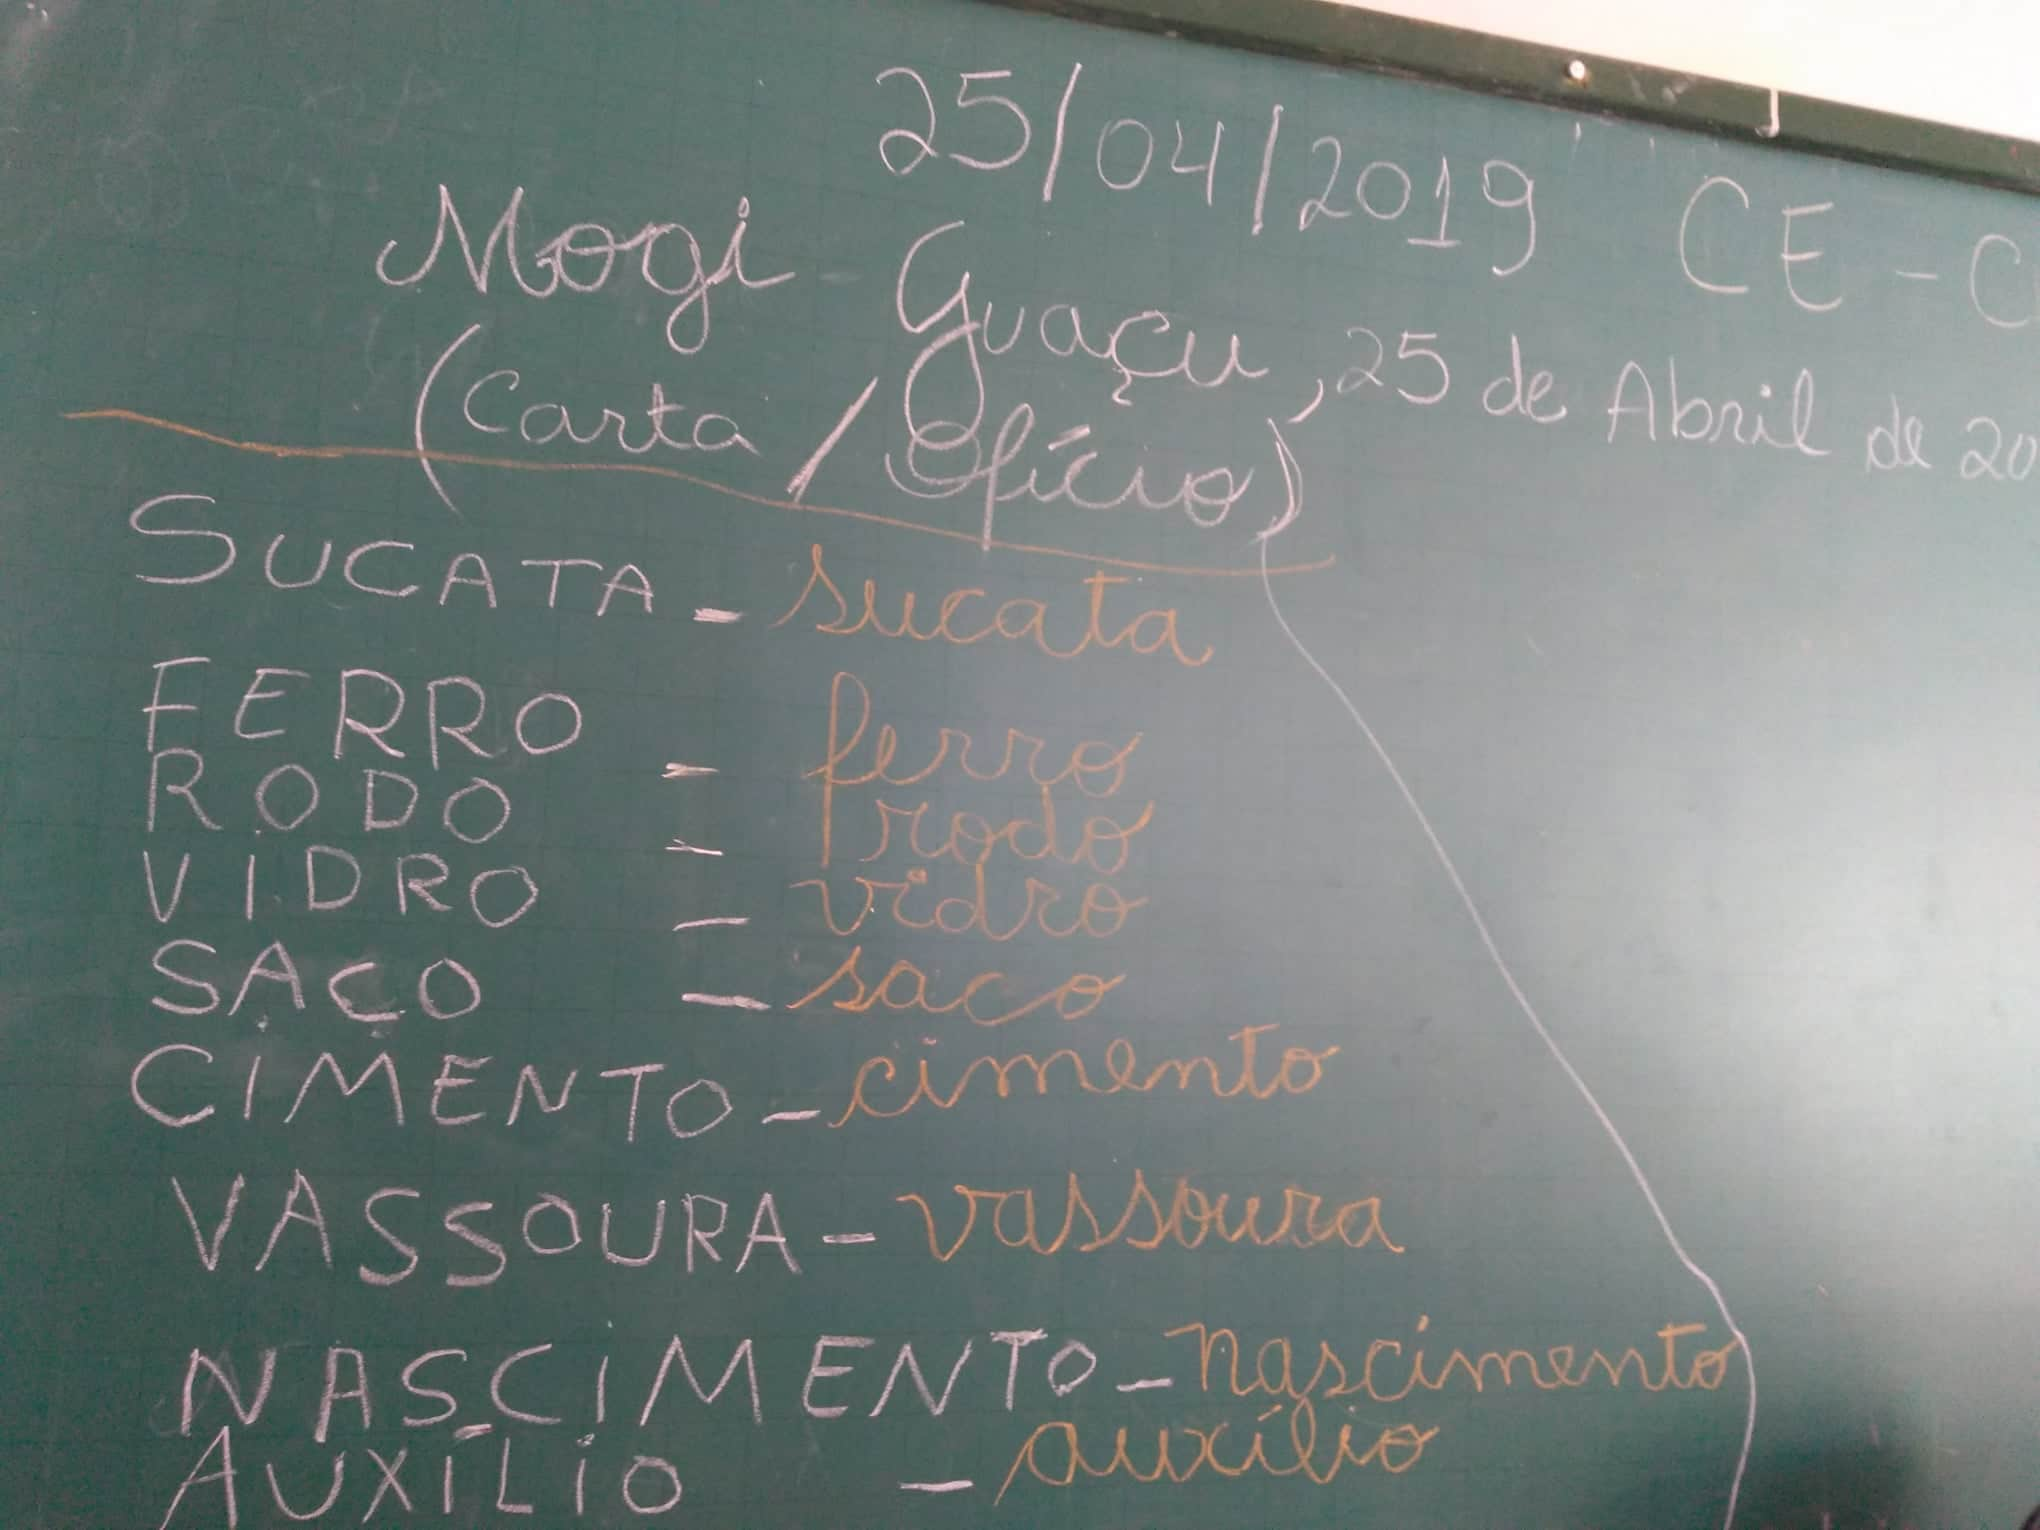 25/04/2019 CE - C
Mogi Guaçu, 25 de Abril de 20
(Carta / Ofício)
SUCATA - sucata
FERRO - ferro
RODO - rodo
VIDRO - vidro
SACO - saco
CIMENTO - cimento
VASSOURA - vassoura
NASCIMENTO - nascimento
AUXÍLIO - auxílio